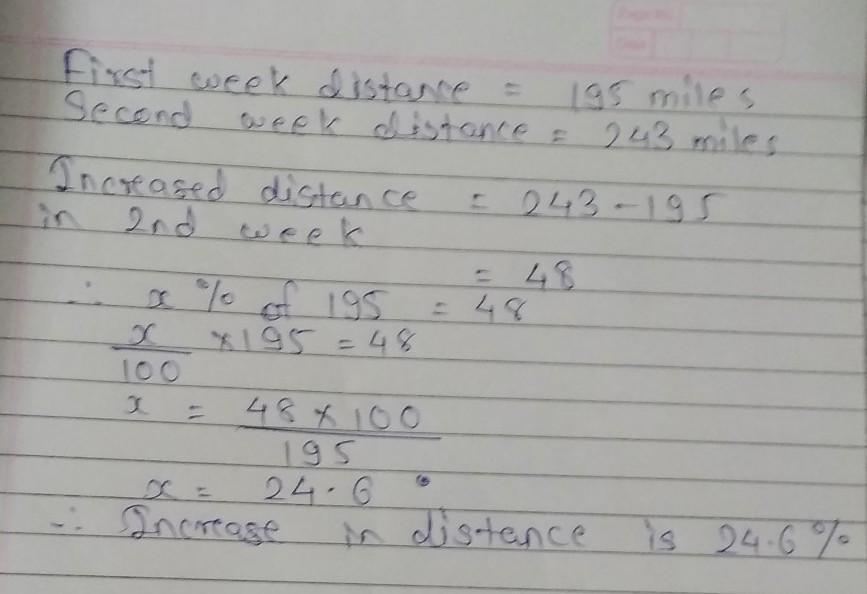 Page No.
Date
First week distance = 195 miles
Second week distance = 243 miles
Increased distance = 243 - 195
in 2nd week
= 48
∴ x % of 195 = 48
x/100 × 195 = 48
x = 48 × 100 / 195
x = 24.6
∴ Increase in distance is 24.6%